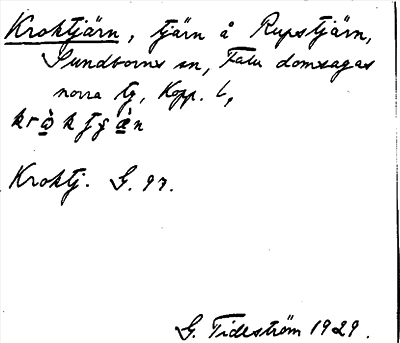 Kroktjärn, tjärn å Rupstjärn,
Sundborns sn, Falu domsagas
norra tg, Kopp. l,
Kroktj. G. 97.
G. Tideström 1929.